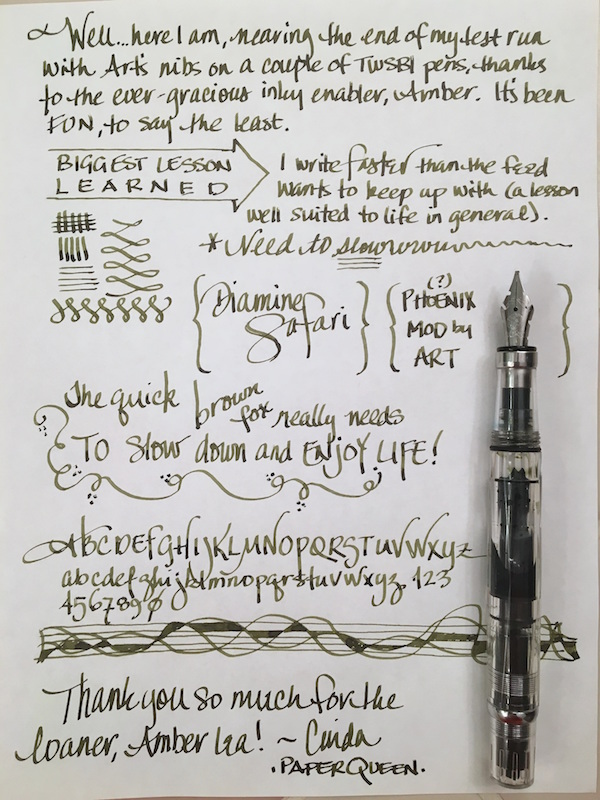 Well...here I am, nearing the end of my test run
with Art's nibs on a couple of TWSBI pens, thanks
to the ever-gracious inky enabler, Amber. It's been
FUN, to say the least.
BIGGEST LESSON
LEARNED
I write faster than the feed
wants to keep up with (a lesson
well suited to life in general).
* Need to slowwwww
{Diamine
Safari}
{(?)
PHOENIX
MOD by
ART}
The quick brown
fox really needs
TO Slow down and ENJOY LIFE!
ABCDEFGHIJKLMNOPQRSTUVWXYZ
abcdefghijklmnopqrstuvwxyz. 123
4567890
Thank you so much for the
loaner, Amber Lea! ~ Cinda
.PAPERQUEEN.